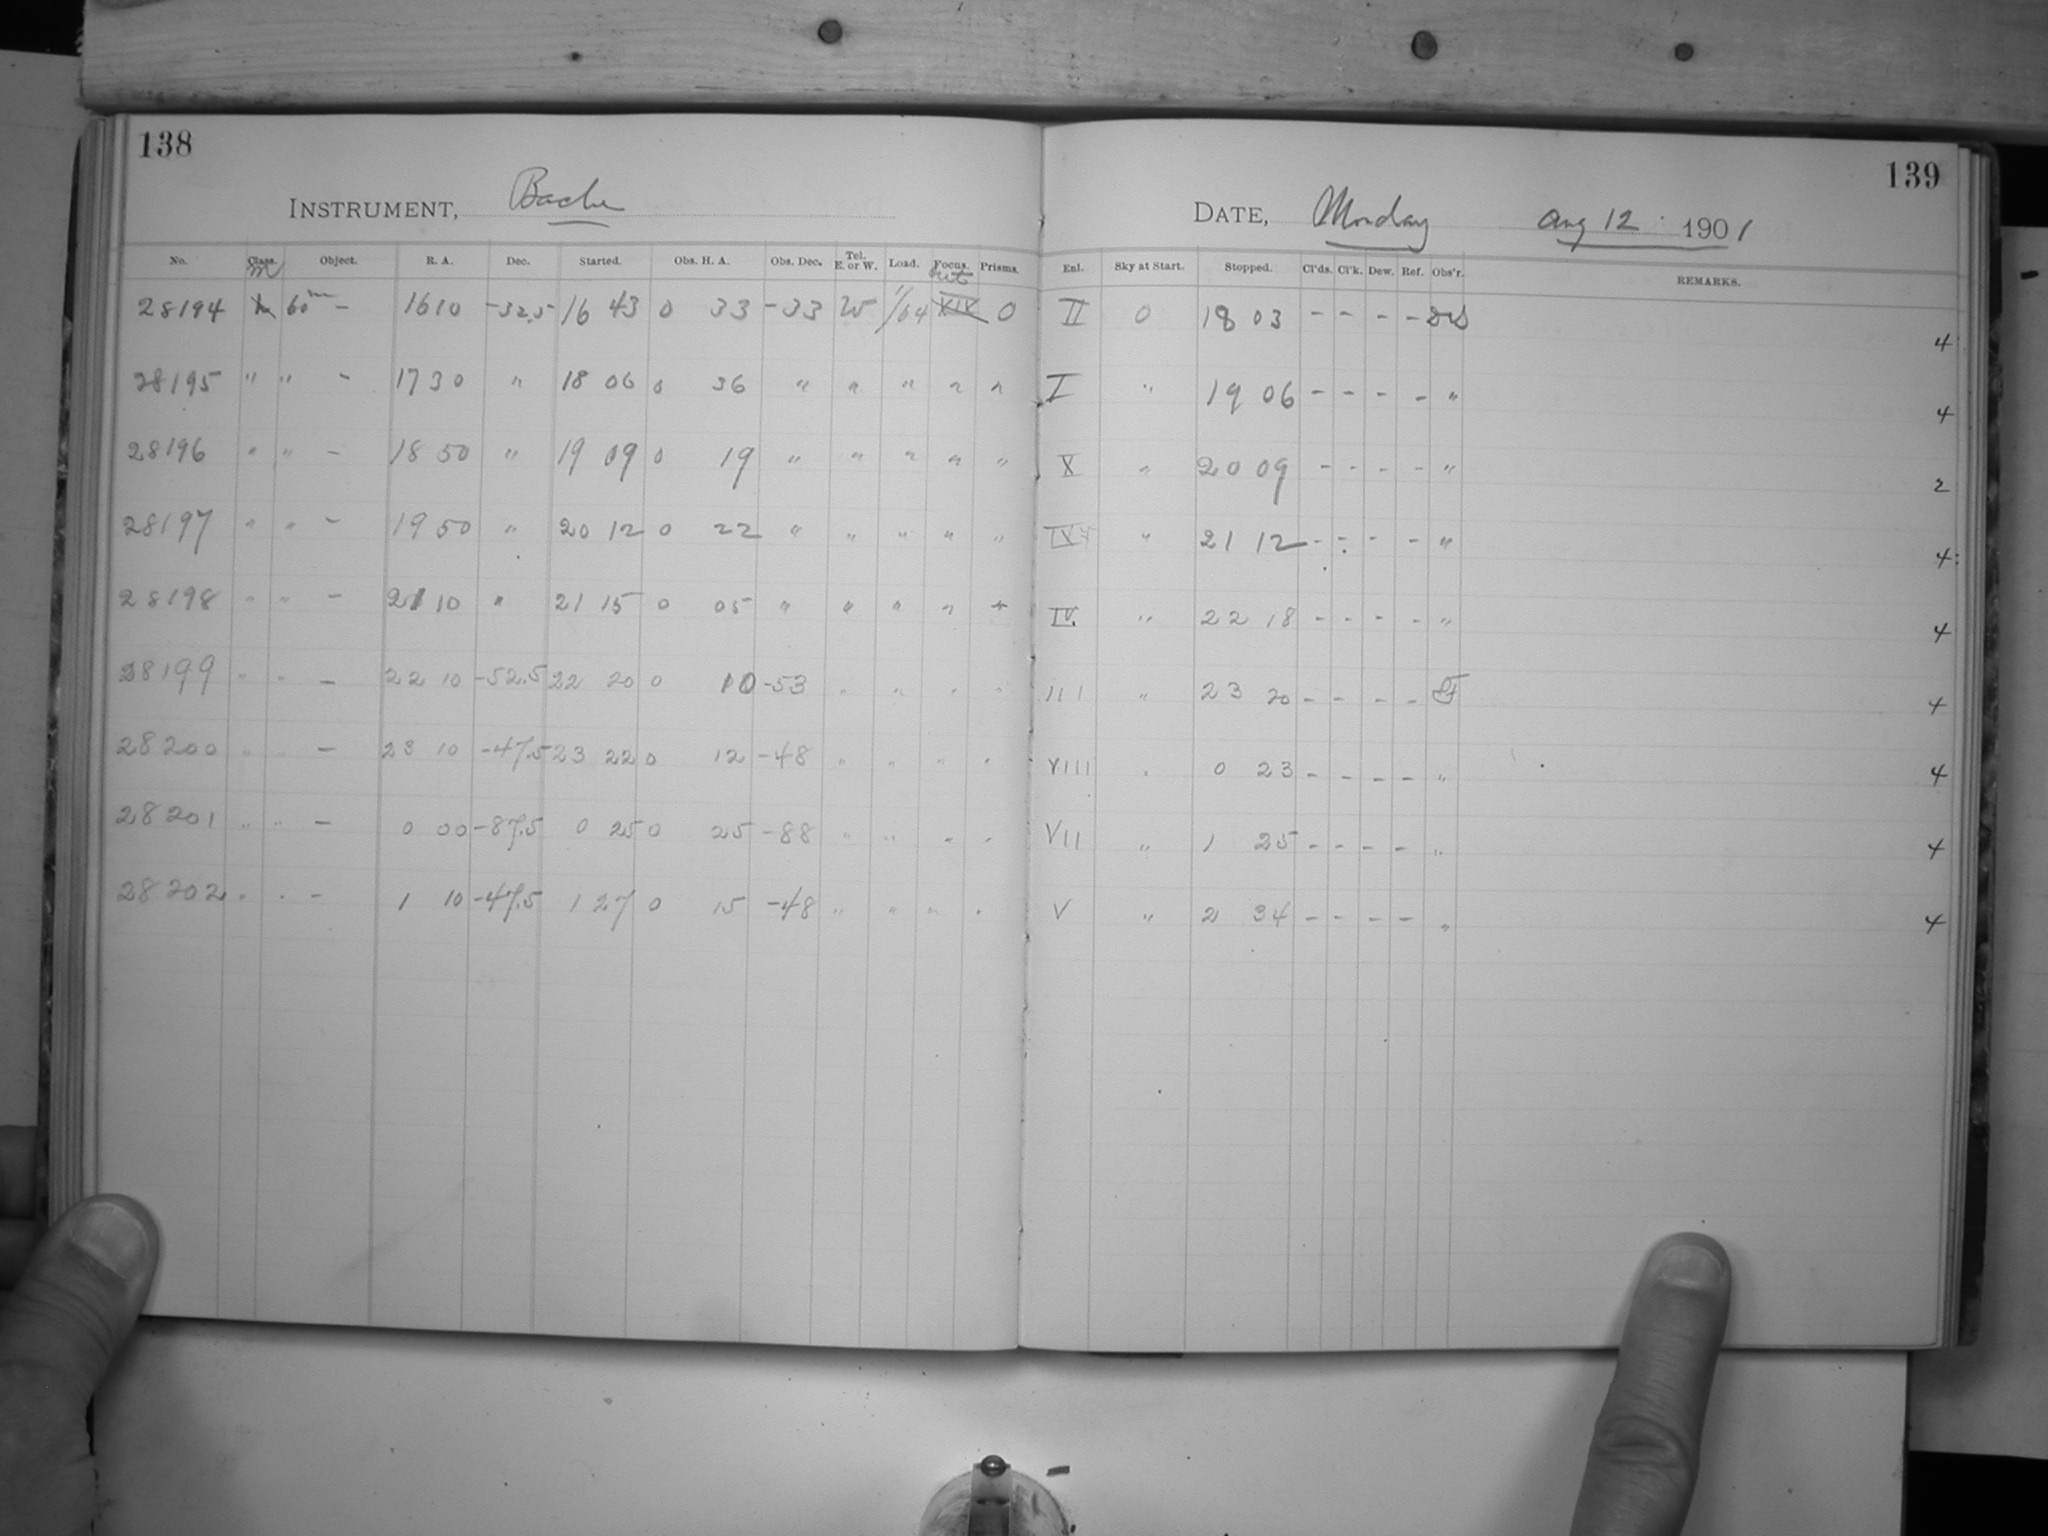 138
139
INSTRUMENT, Bache
DATE, Monday Aug 12 1901
No. Class. Object. R. A. Dec. Started. Obs. H. A. Obs. Dec. Tel. E. or W. Load. Focus. Prisms. Enl. Sky at Start. Stopped. Cl'ds. Cl'k. Dew. Ref. Obs'r. REMARKS.
28194 60m - 16 10 -32.5 16 43 0 33 -33 W 1/64 XIX 0 II 0 18 03 - - - - 4
28195 " " - 17 30 " 18 06 0 36 " " " " " I " 19 06 - - - - " 4
28196 " " - 18 50 " 19 09 0 19 " " " " " X " 20 09 - - - - " 2
28197 " " - 19 50 " 20 12 0 22 " " " " " " 21 12 - - - - " 4
28198 " " - 21 10 " 21 15 0 05 " " " " " IV. " 22 18 - - - - " 4
28199 " " - 22 10 -52.5 22 20 0 10 -53 " " " " III " 23 20 - - - - 4
28200 " " - 23 10 -47.5 23 22 0 12 -48 " " " " VIII " 0 23 - - - - " 4
28201 " " - 0 00 -87.5 0 25 0 25 -88 " " " " VII " 1 25 - - - - " 4
28202 " " - 1 10 -47.5 1 27 0 15 -48 " " " " V " 2 34 - - - - " 4